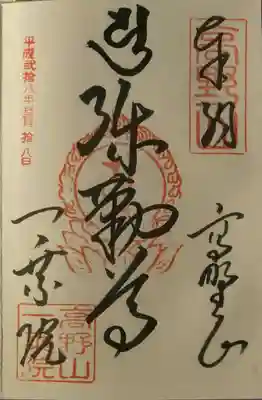 奉拝
高野山
弥勒尊
一乗院
平成弐拾八年 月拾八日
高野山
一乗院